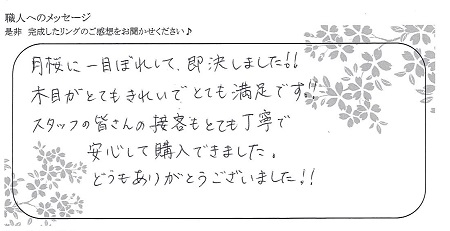 職人へのメッセージ
是非 完成したリングのご感想をお聞かせください♪
月桜に一目ぼれして、即決しました!!
木目がとてもきれいでとても満足です!!
スタッフの皆さんの接客もとても丁寧で
安心して購入できました。
どうもありがとうございました!!